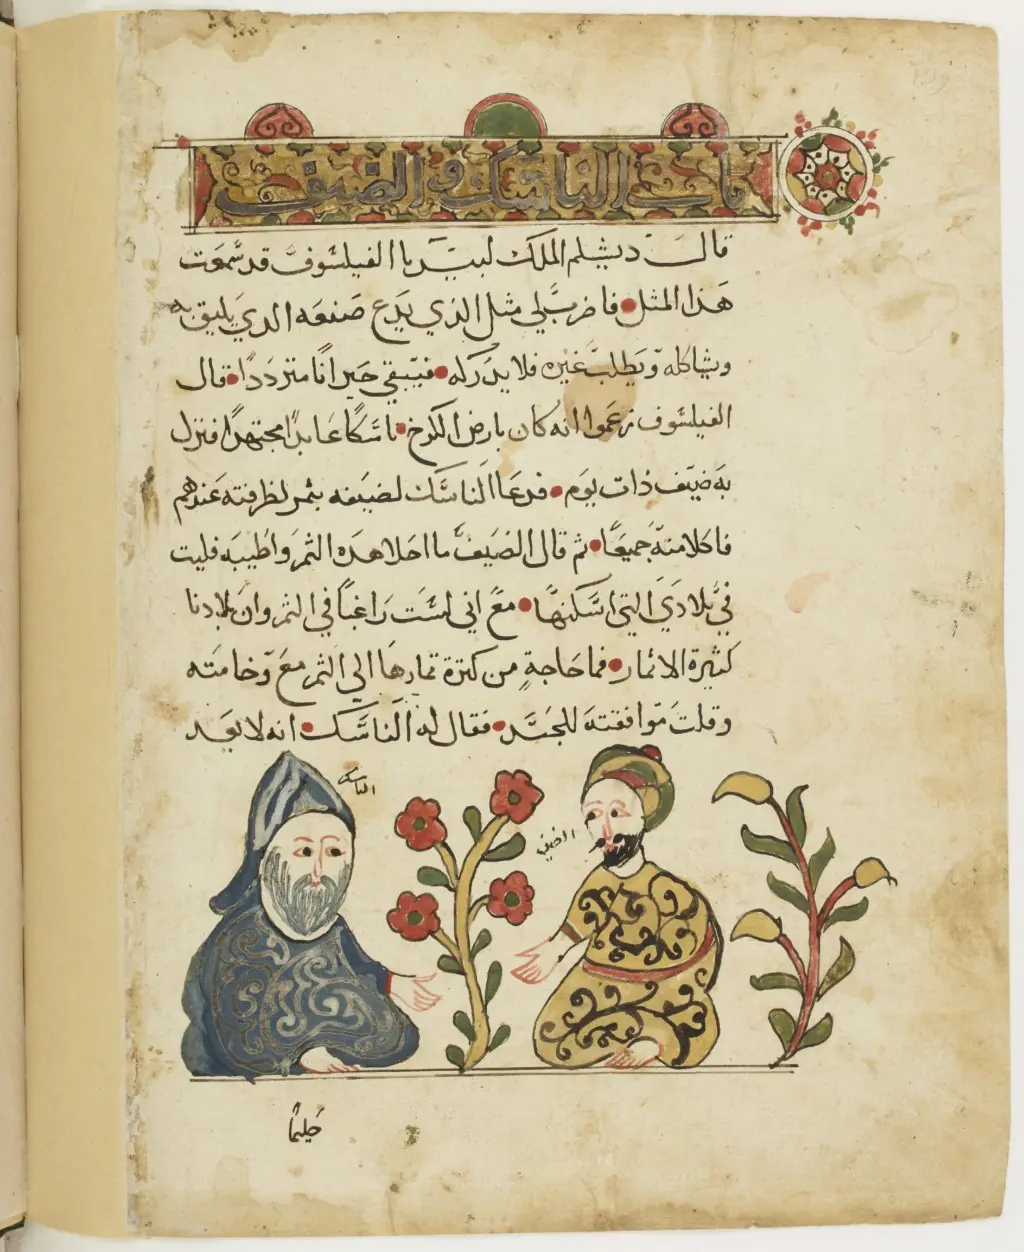 باب الناسك والضيف
قال دبشليم الملك لبيدبا الفيلسوف قد سمعت
هذا المثل فاضرب لي مثل الذي يدع صنعه الذي يليق به
ويشاكله ويطلب غيره فلا يدركه فيبقي حيرانا مترددا قال
الفيلسوف زعموا انه كان بارض الكرخ ناسكا عابدا مجتهدا فنزل
به ضيف ذات يوم فدعا الناسك لضيفه بثمر لطرفته عندهم
فاكلا منه جميعا ثم قال الضيف ما احلا هذه الثمر واطيبه فليت
في بلادي التي اسكنها مع اني لست راغبا في الثمر وان بلادنا
كثيرة الاثمار فما حاجة من كثرة ثمارها الي الثمر مع وخامته
وقلت موافقته للجسد فقال له الناسك انه لا يعد
الناسك
الضيف
حليما